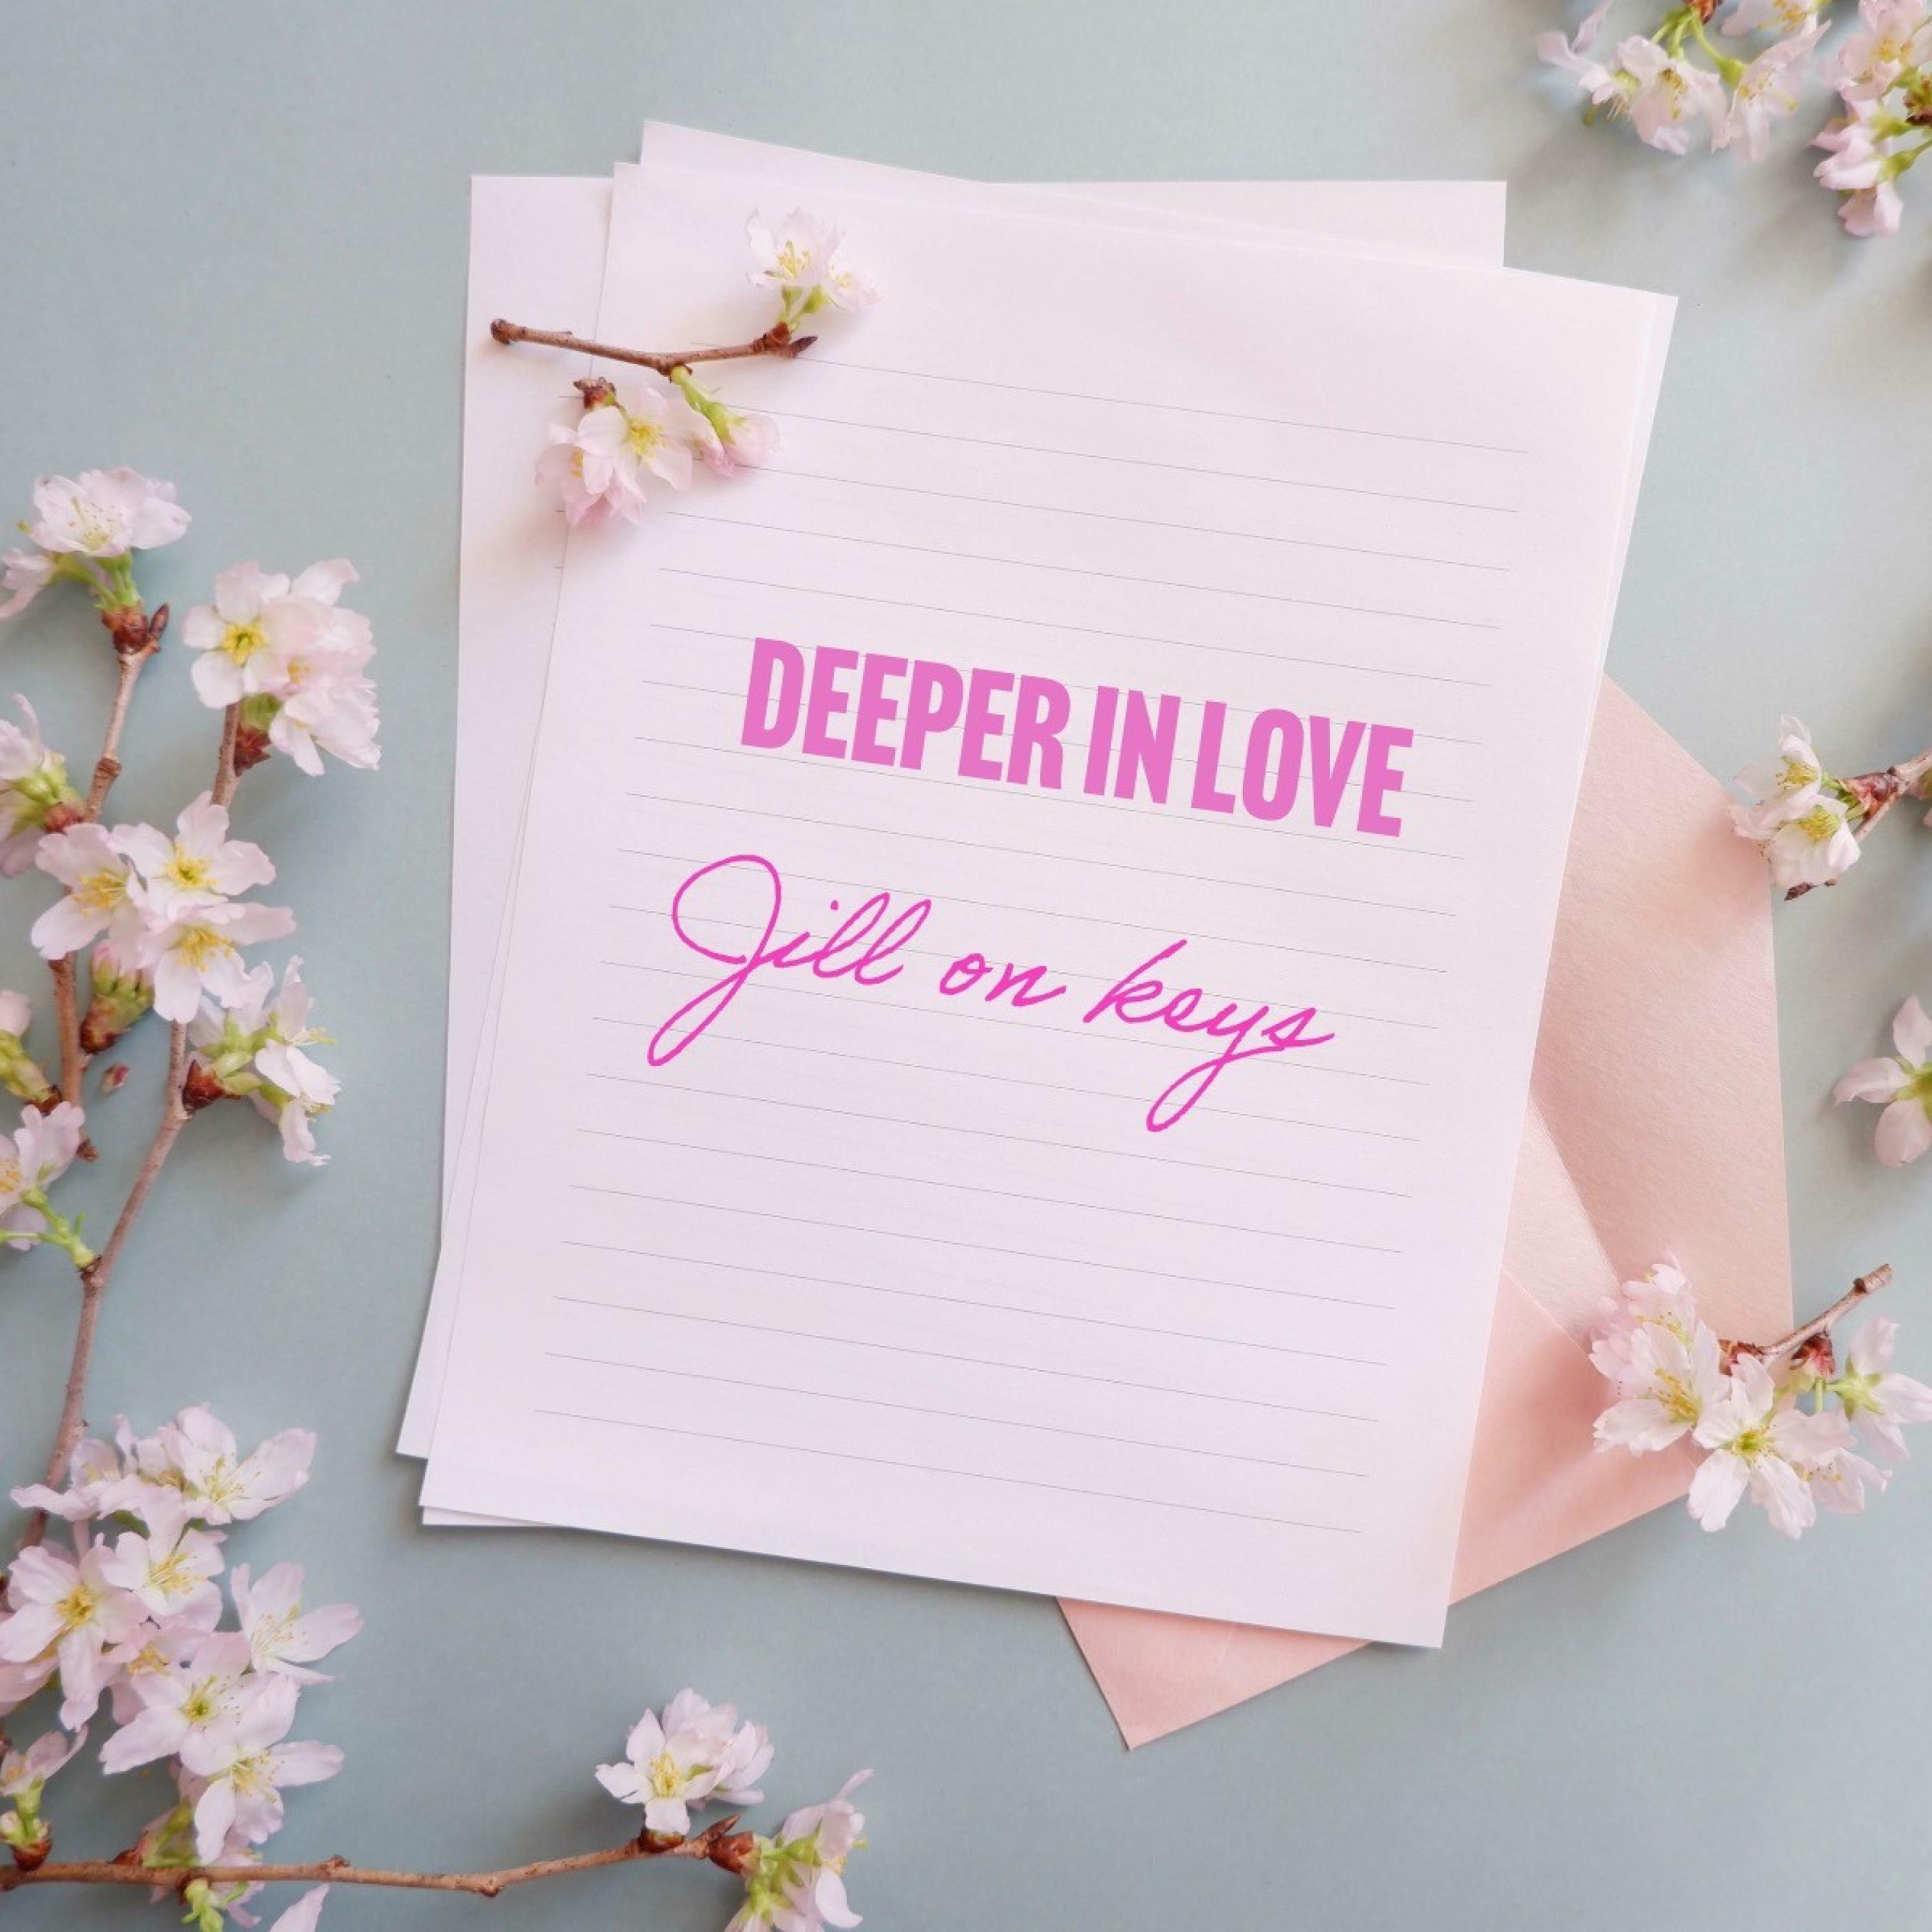 DEEPER IN LOVE
Jill on keys